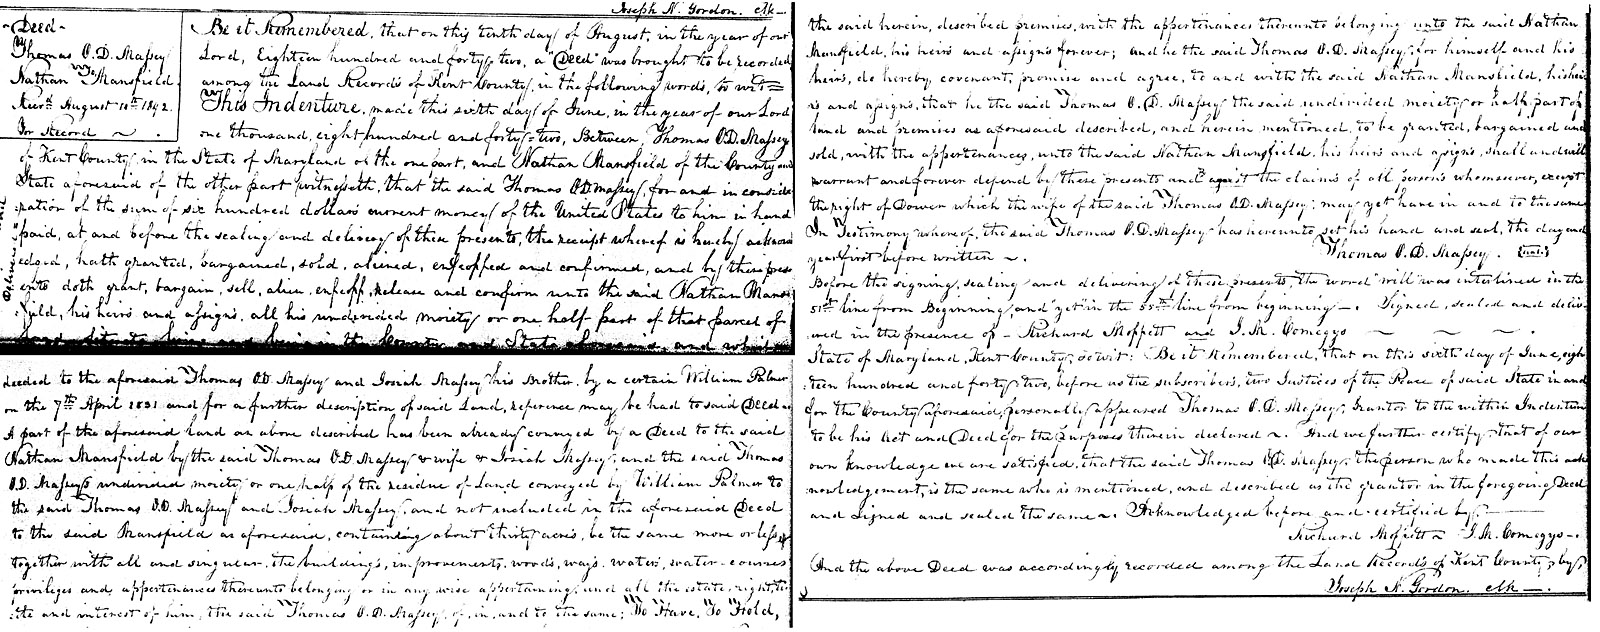 Joseph N. Gordon. clk —
Deed-
Thomas O.D. Massey
Nathan Mansfield
Recd. August 10th 1842.
For Record ~ .
Be it Remembered, that on this tenth day of August, in the year of our
Lord, Eighteen hundred and forty two, a "Deed" was brought to be recorded
among the Land Records of Kent County, in the following words, to wit =
This Indenture, made this sixth day of June, in the year of our Lord
one thousand, eight hundred and forty-two, Between, Thomas O.D. Massey
of Kent County, in the State of Maryland of the one part, and Nathan Mansfield of the County and
State aforesaid of the other part witnesseth, that the said Thomas O.D. Massey for and in consid-
eration of the sum of six hundred dollars current money of the United States to him in hand
paid, at and before the sealing and delivery of these presents, the receipt whereof is hereby acknow
edged, hath granted, bargained, sold, aliened, enfeoffed and confirmed, and by these pres
ents doth grant, bargain, sell, alien, enfeoff, release and confirm unto the said Nathan Mans
field, his heirs and assigns, all his undivided moiety or one half part of that parcel of
land situate lying and being in the County and State aforesaid, and which
deeded to the aforesaid Thomas O.D. Massey and Josiah Massey his Brother, by a certain William Palmer
on the 7th April 1831 and for a further description of said Land, reference may be had to said Deed
A part of the aforesaid land as above described has been already conveyed by a Deed to the said
Nathan Mansfield by the said Thomas O.D. Massey & wife & Josiah Massey, and the said Thomas
O.D. Massey's undivided moiety or one half of the residue of Land conveyed by William Palmer to
the said Thomas O.D. Massey and Josiah Massey, and not included in the aforesaid Deed
to the said Mansfield as aforesaid, containing about thirty acres, be the same more or less,
together with all and singular, the buildings, improvements, woods, ways, waters, water-courses
privileges and appertenances thereunto belonging or in any wise appertaining, and all the estate, right, ti
tle and interest of him, the said Thomas O.D. Massey, of, in, and to the same; To Have, To Hold,
the said herein, described premises, with the appertenances thereunto belonging unto the said Nathan
Mansfield, his heirs and assigns forever; and he the said Thomas O.D. Massey, for himself and his
heirs, do hereby covenant, promise and agree, to and with the said Nathan Mansfield, his hei
rs and assigns, that he the said Thomas O.D. Massey the said undivided moiety or half part of
land and premises as aforesaid described, and herein mentioned, to be granted, bargained and
sold, with the appertenances, unto the said Nathan Mansfield, his heirs and assigns, shall and will
warrant and forever defend by these presents and against the claims of all persons whomsoever, except
the right of Dower which the wife of the said Thomas O.D. Massey; may yet have in and to the same
In Testimony whereof, the said Thomas O.D. Massey has hereunto set his hand and seal, the day and
year first before written ~.
Thomas O.D. Massey. {seal}
Before the signing, sealing and delivering of these presents, the word "will" was interlined in the
51st line from Beginning, and "yet" in the 55th line from beginning —. Signed, sealed and deliv-
ered in the presence of - Richard Moffett and J.M. Comegys ~ ~ ~ .
State of Maryland, Kent County, to wit: Be it Remembered, that on this sixth day of June, eigh
teen hundred and forty two, before us the subscribers, two Justices of the Peace of said State in and
for the County aforesaid, personally appeared Thomas O.D. Massey, Grantor to the within Indenture
to be his Act and Deed for the purposes therein declared ~. And we further certify, that of our
own knowledge we are satisfied, that the said Thomas O.D. Massey, the person who made this ack
nowledgement, is the same who is mentioned, and described as the grantor in the foregoing Deed
and signed and sealed the same ~. Acknowledged before and certified by,
Richard Moffett ~ J.M. Comegys —.
And the above Deed was accordingly recorded among the Land Records of Kent County, by,
Joseph N. Gordon. clk —.